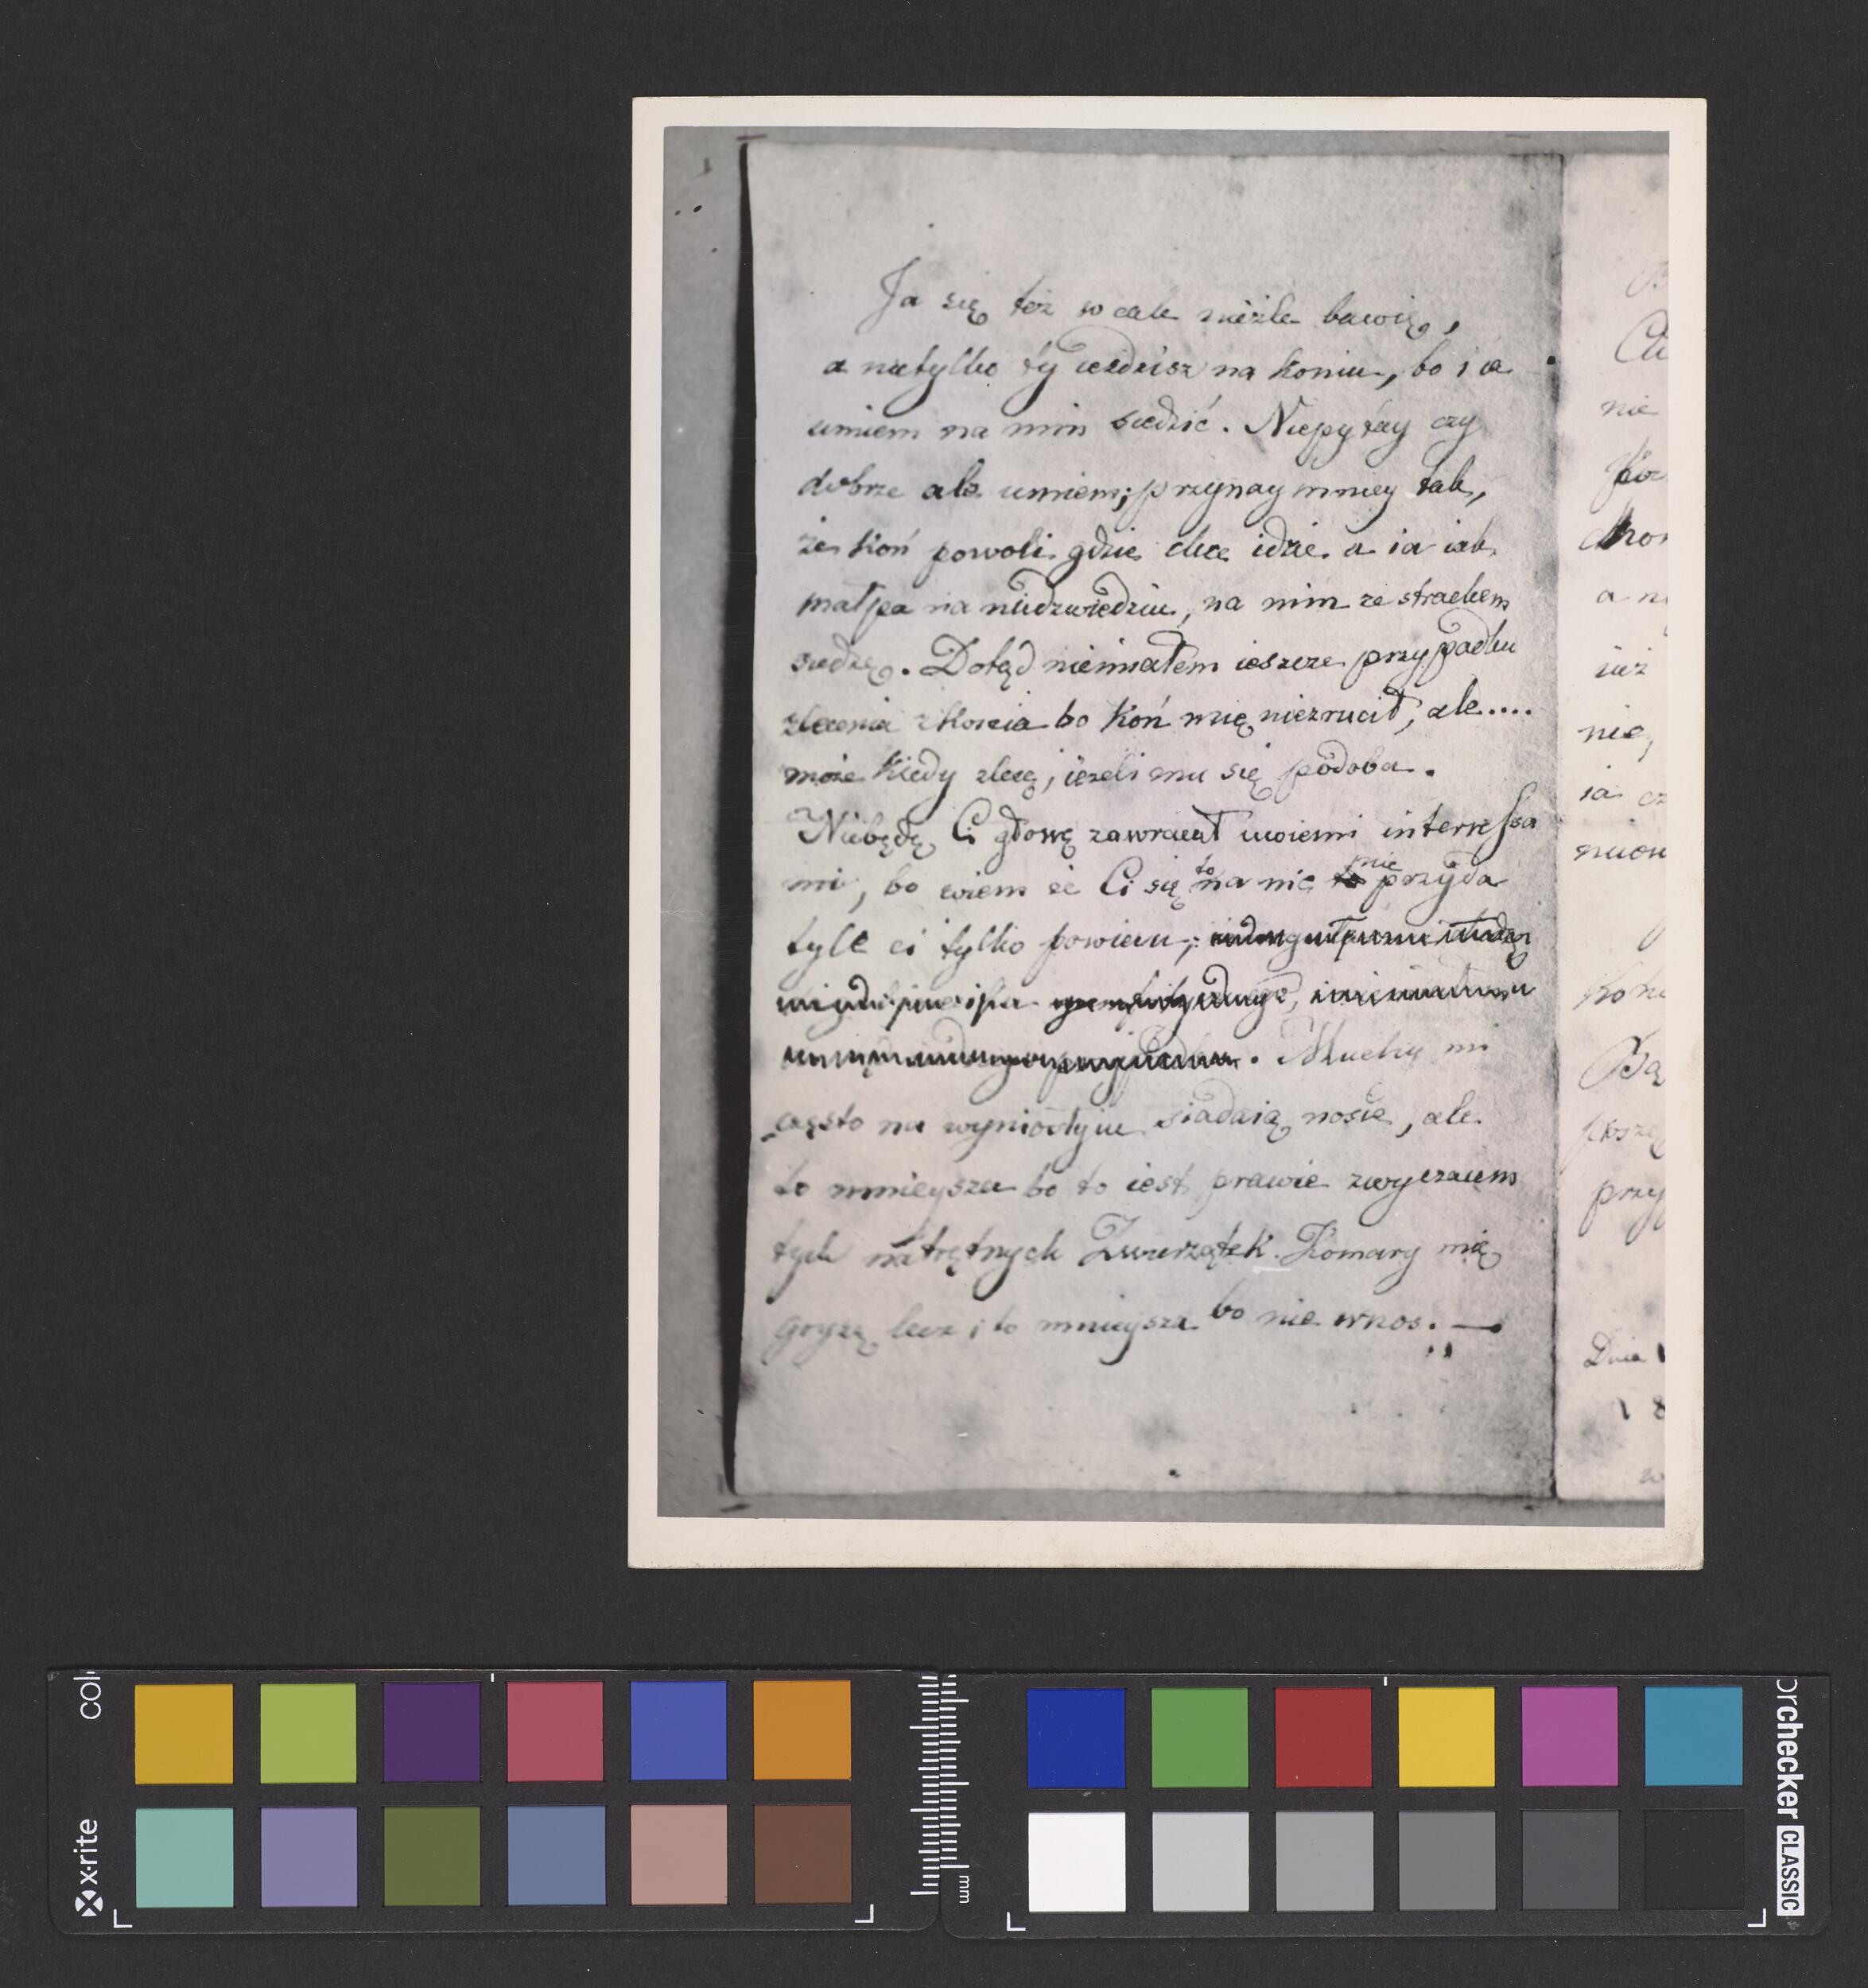 Ja się też wcale nieźle bawię,
a nietylko ty ieździsz na koniu, bo i ia
umiem na nim siedzić. Niepytay czy
dobrze ale umiem; przynaymniey tak,
że koń powoli gdzie chce idzie a ia iak
małpa na niedzwiedziu, na nim ze strachem
siedzę. Dotąd niemiałem ieszcze przypadku
zlecenia z konia bo koń mię niezrucił, ale....
może kiedy zlecę, ieżeli mu się podoba.
Niebędę Ci głowę zawracał moiemi interessa
mi, bo wiem że Ci się to na nic nie przyda
tyle ci tylko powiem,
Muchy mi
często na wyniosłym siadaią nosie, ale
to mnieysza bo to iest prawie zwyczaiem
tych natrętnych Zwierzątek. Komary mię
gryzą lecz i to mnieysza bo nie w nos. —
Dnia
x·rite
col
mm
orchecker CLASSIC